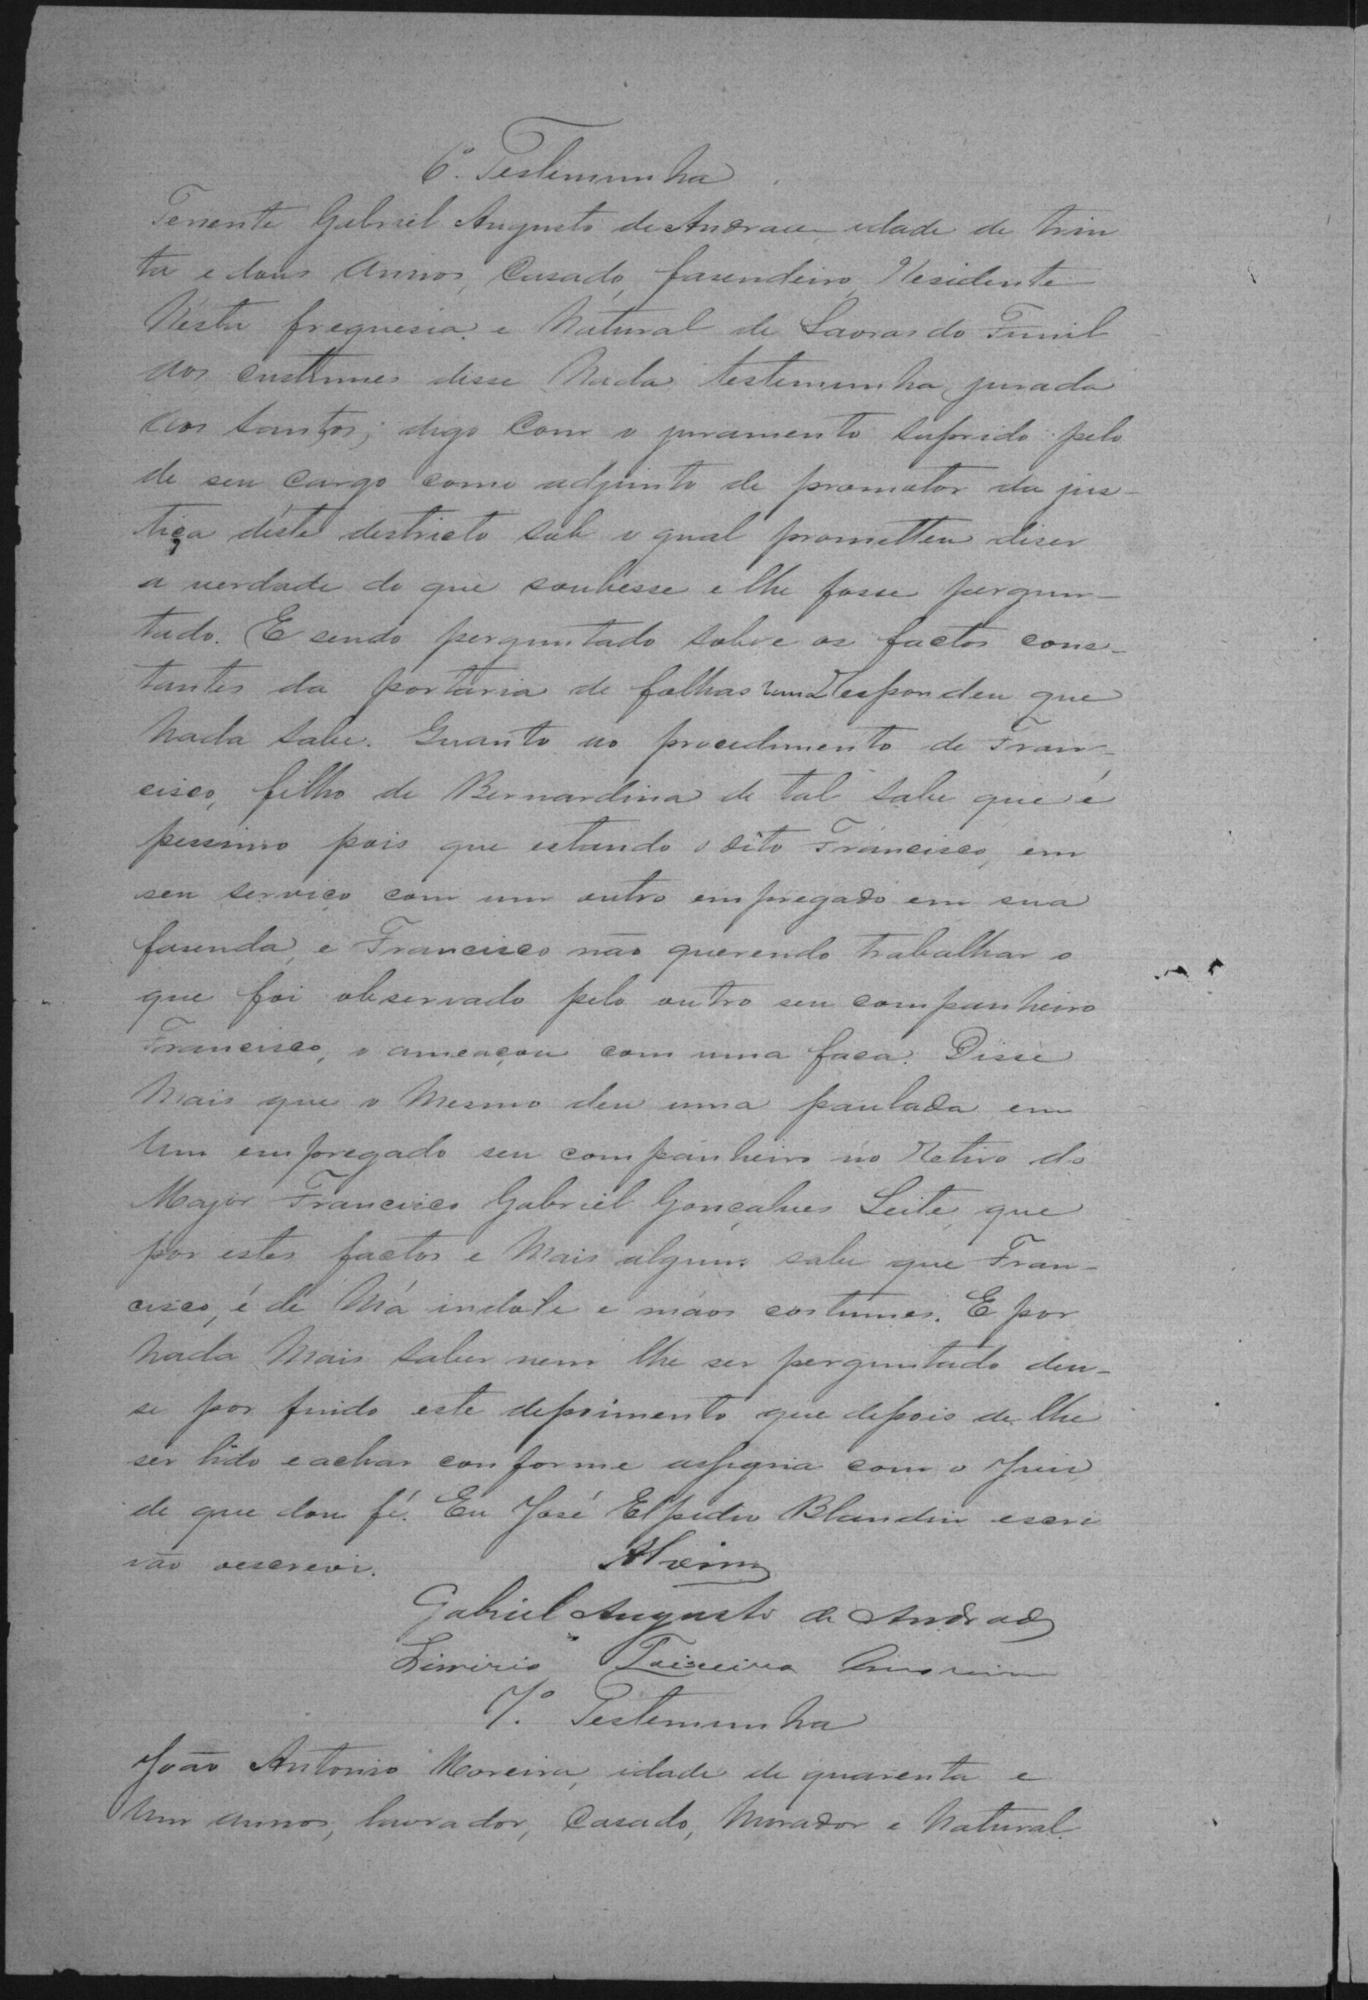 6ª. Testemunha
Tenente Gabriel Augusto de Andrade, idade de trin
ta e dous annos, Casado, fasendeiro, Residente
Nésta freguesia, e Natural de Lavras do Funil
aos custumes disse Nada testemunha, jurada
aos santos; digo Com o juramento suprido pelo
de seu Cargo como adjunto de promotor da jus-
tiça déste destricto sob o qual prometteu diser
a verdade do que soubesse e lhe fosse pergun-
tado. E sendo perguntado sobre os factos cons-
tantes da portaria de folhas uma Respondeu que
Nada sabe. Quanto ao procedimento de Fran-
cisco, filho de Bernardina de tal sabe que é
pessimo pois que estando o dito Francisco, em
seu serviço com um outro empregado em sua
fasenda, e Francisco não querendo trabalhar o
que foi observado pelo outro seu companheiro
Francisco, o ameaçou com uma faca. Disse
Mais que o Mesmo deu uma paulada em
Um empregado seu companheiro no Retiro do
Major Francisco Gabriel Gonçalves Leite, que
por estes factos e Mais alguns sabe que Fran-
cisco, é de Má indole e máos costumes. E por
Nada Mais saber nem lhe ser perguntado deu-
se por findo este depoimento que depois de lhe
ser lido e achar conforme assigna com o Juiz
de que dou fé. Eu José Elpidio Blandin escri
vão oescrevi.
Alvim
Gabriel Augusto de Andrade
Teixeira Amorim
7ª. Testemunha
João Antonio Moreira, idade de quarenta e
Um annos, lavrador, Casado, Morador e Natural